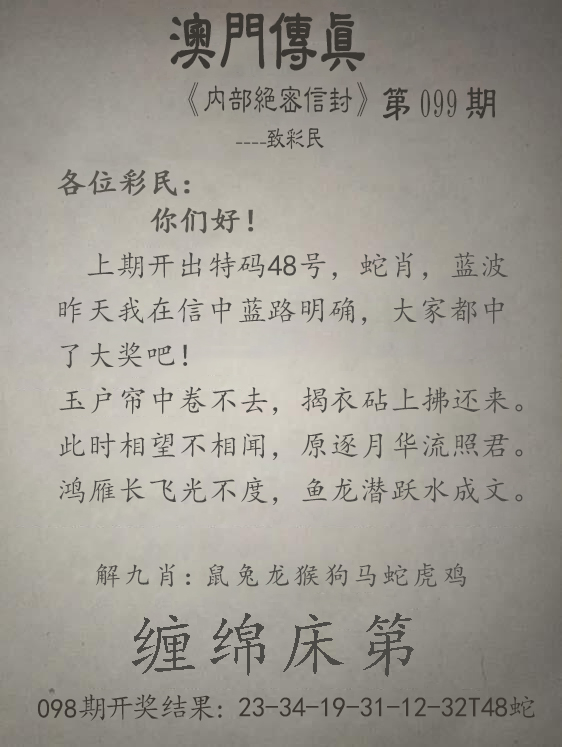 澳門傳眞
《内部絕密信封》第099期
----致彩民
各位彩民：
你们好！
上期开出特码48号，蛇肖，蓝波
昨天我在信中蓝路明确，大家都中
了大奖吧！
玉户帘中卷不去，揭衣砧上拂还来。
此时相望不相闻，原逐月华流照君。
鸿雁长飞光不度，鱼龙潜跃水成文。
解九肖：鼠兔龙猴狗马蛇虎鸡
缠绵床第
098期开奖结果：23-34-19-31-12-32T48蛇